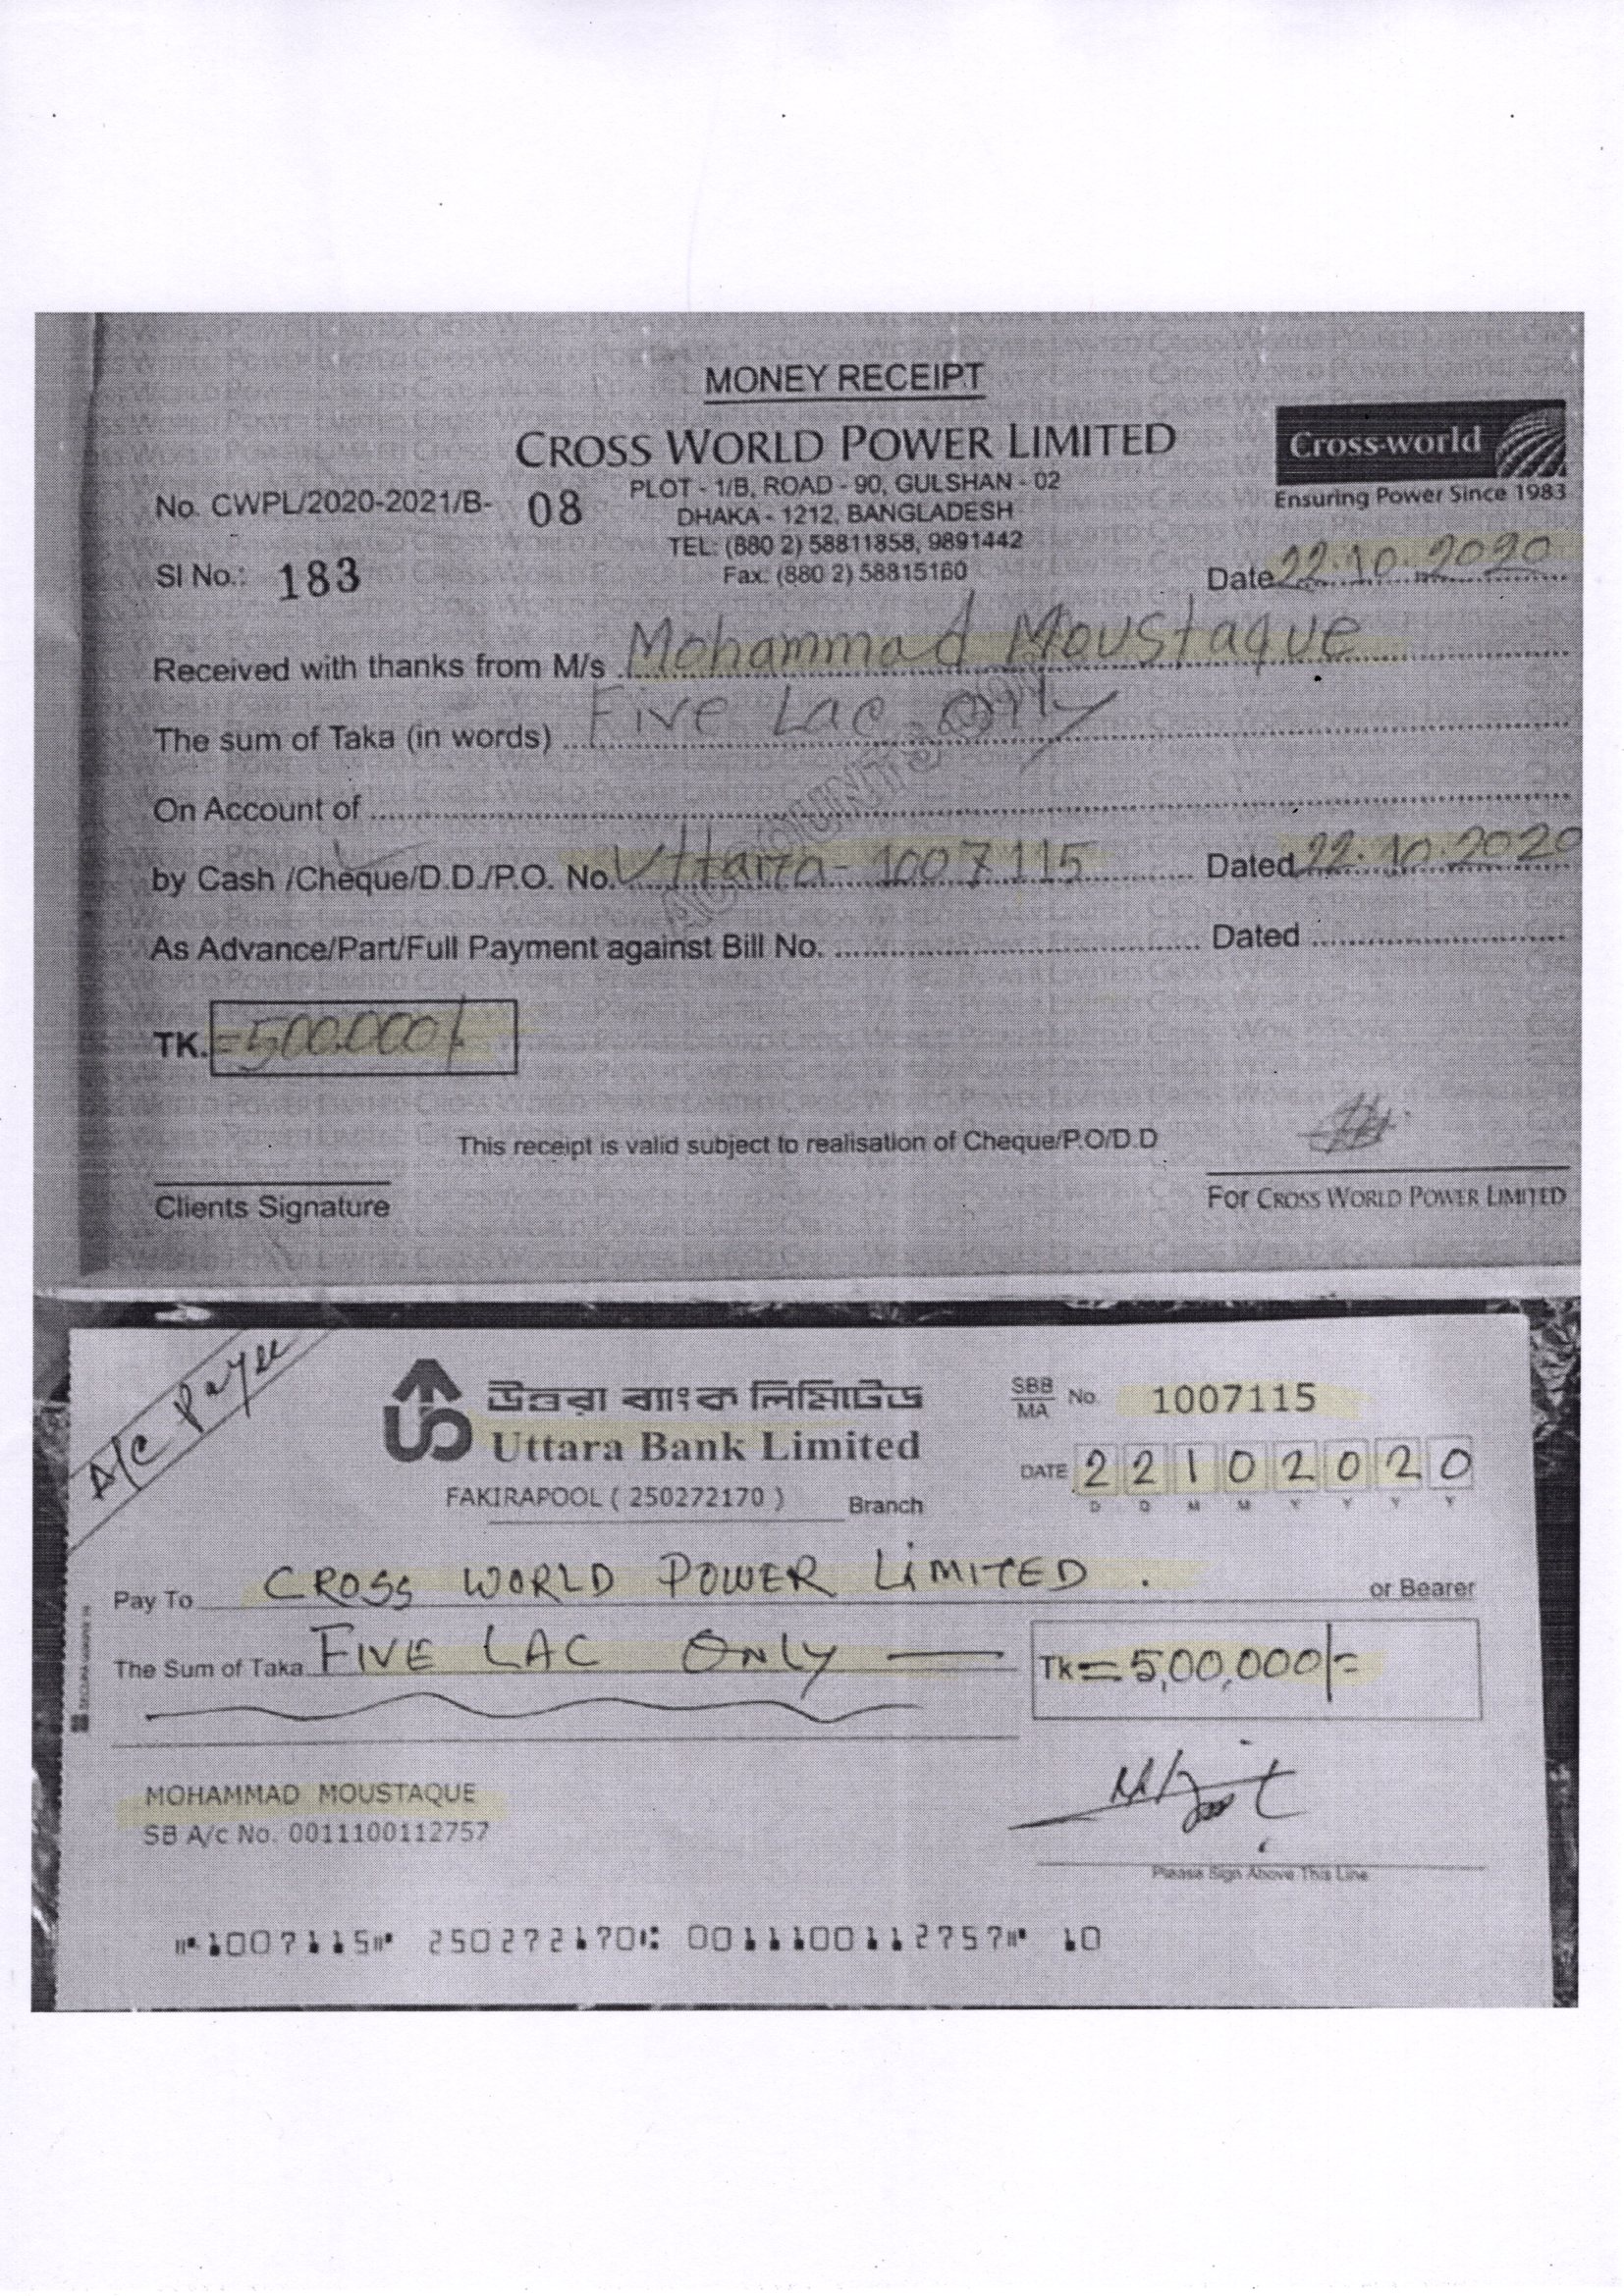 MONEY RECEIPT
CROSS WORLD POWER LIMITED
Cross-world
Ensuring Power Since 1983
No. CWPL/2020-2021/B- 08
PLOT - 1/B, ROAD - 90, GULSHAN - 02
DHAKA - 1212, BANGLADESH
TEL: (880 2) 58811858, 9891442
Fax: (880 2) 58815160
Sl No.: 183
Date 22.10.2020
Received with thanks from M/s Mohammad Moustaque
The sum of Taka (in words) Five Lac only
On Account of
by Cash /Cheque/D.D./P.O. No. Uttara - 1007115 Dated 22.10.2020
As Advance/Part/Full Payment against Bill No. Dated
TK. =500,000/.
This receipt is valid subject to realisation of Cheque/P.O/D.D
Clients Signature
For CROSS WORLD POWER LIMITED
A/C Payee
উত্তরা ব্যাংক লিমিটেড
Uttara Bank Limited
FAKIRAPOOL ( 250272170 ) Branch
SBB
MA No. 1007115
DATE 2 2 1 0 2 0 2 0
D D M M Y Y Y Y
Pay To CROSS WORLD POWER LIMITED . or Bearer
The Sum of Taka FIVE LAC ONLY
Tk = 5,00,000/=
MOHAMMAD MOUSTAQUE
SB A/c No. 0011100112757
Please Sign Above This Line
1007115 250272170 0011100112757 10